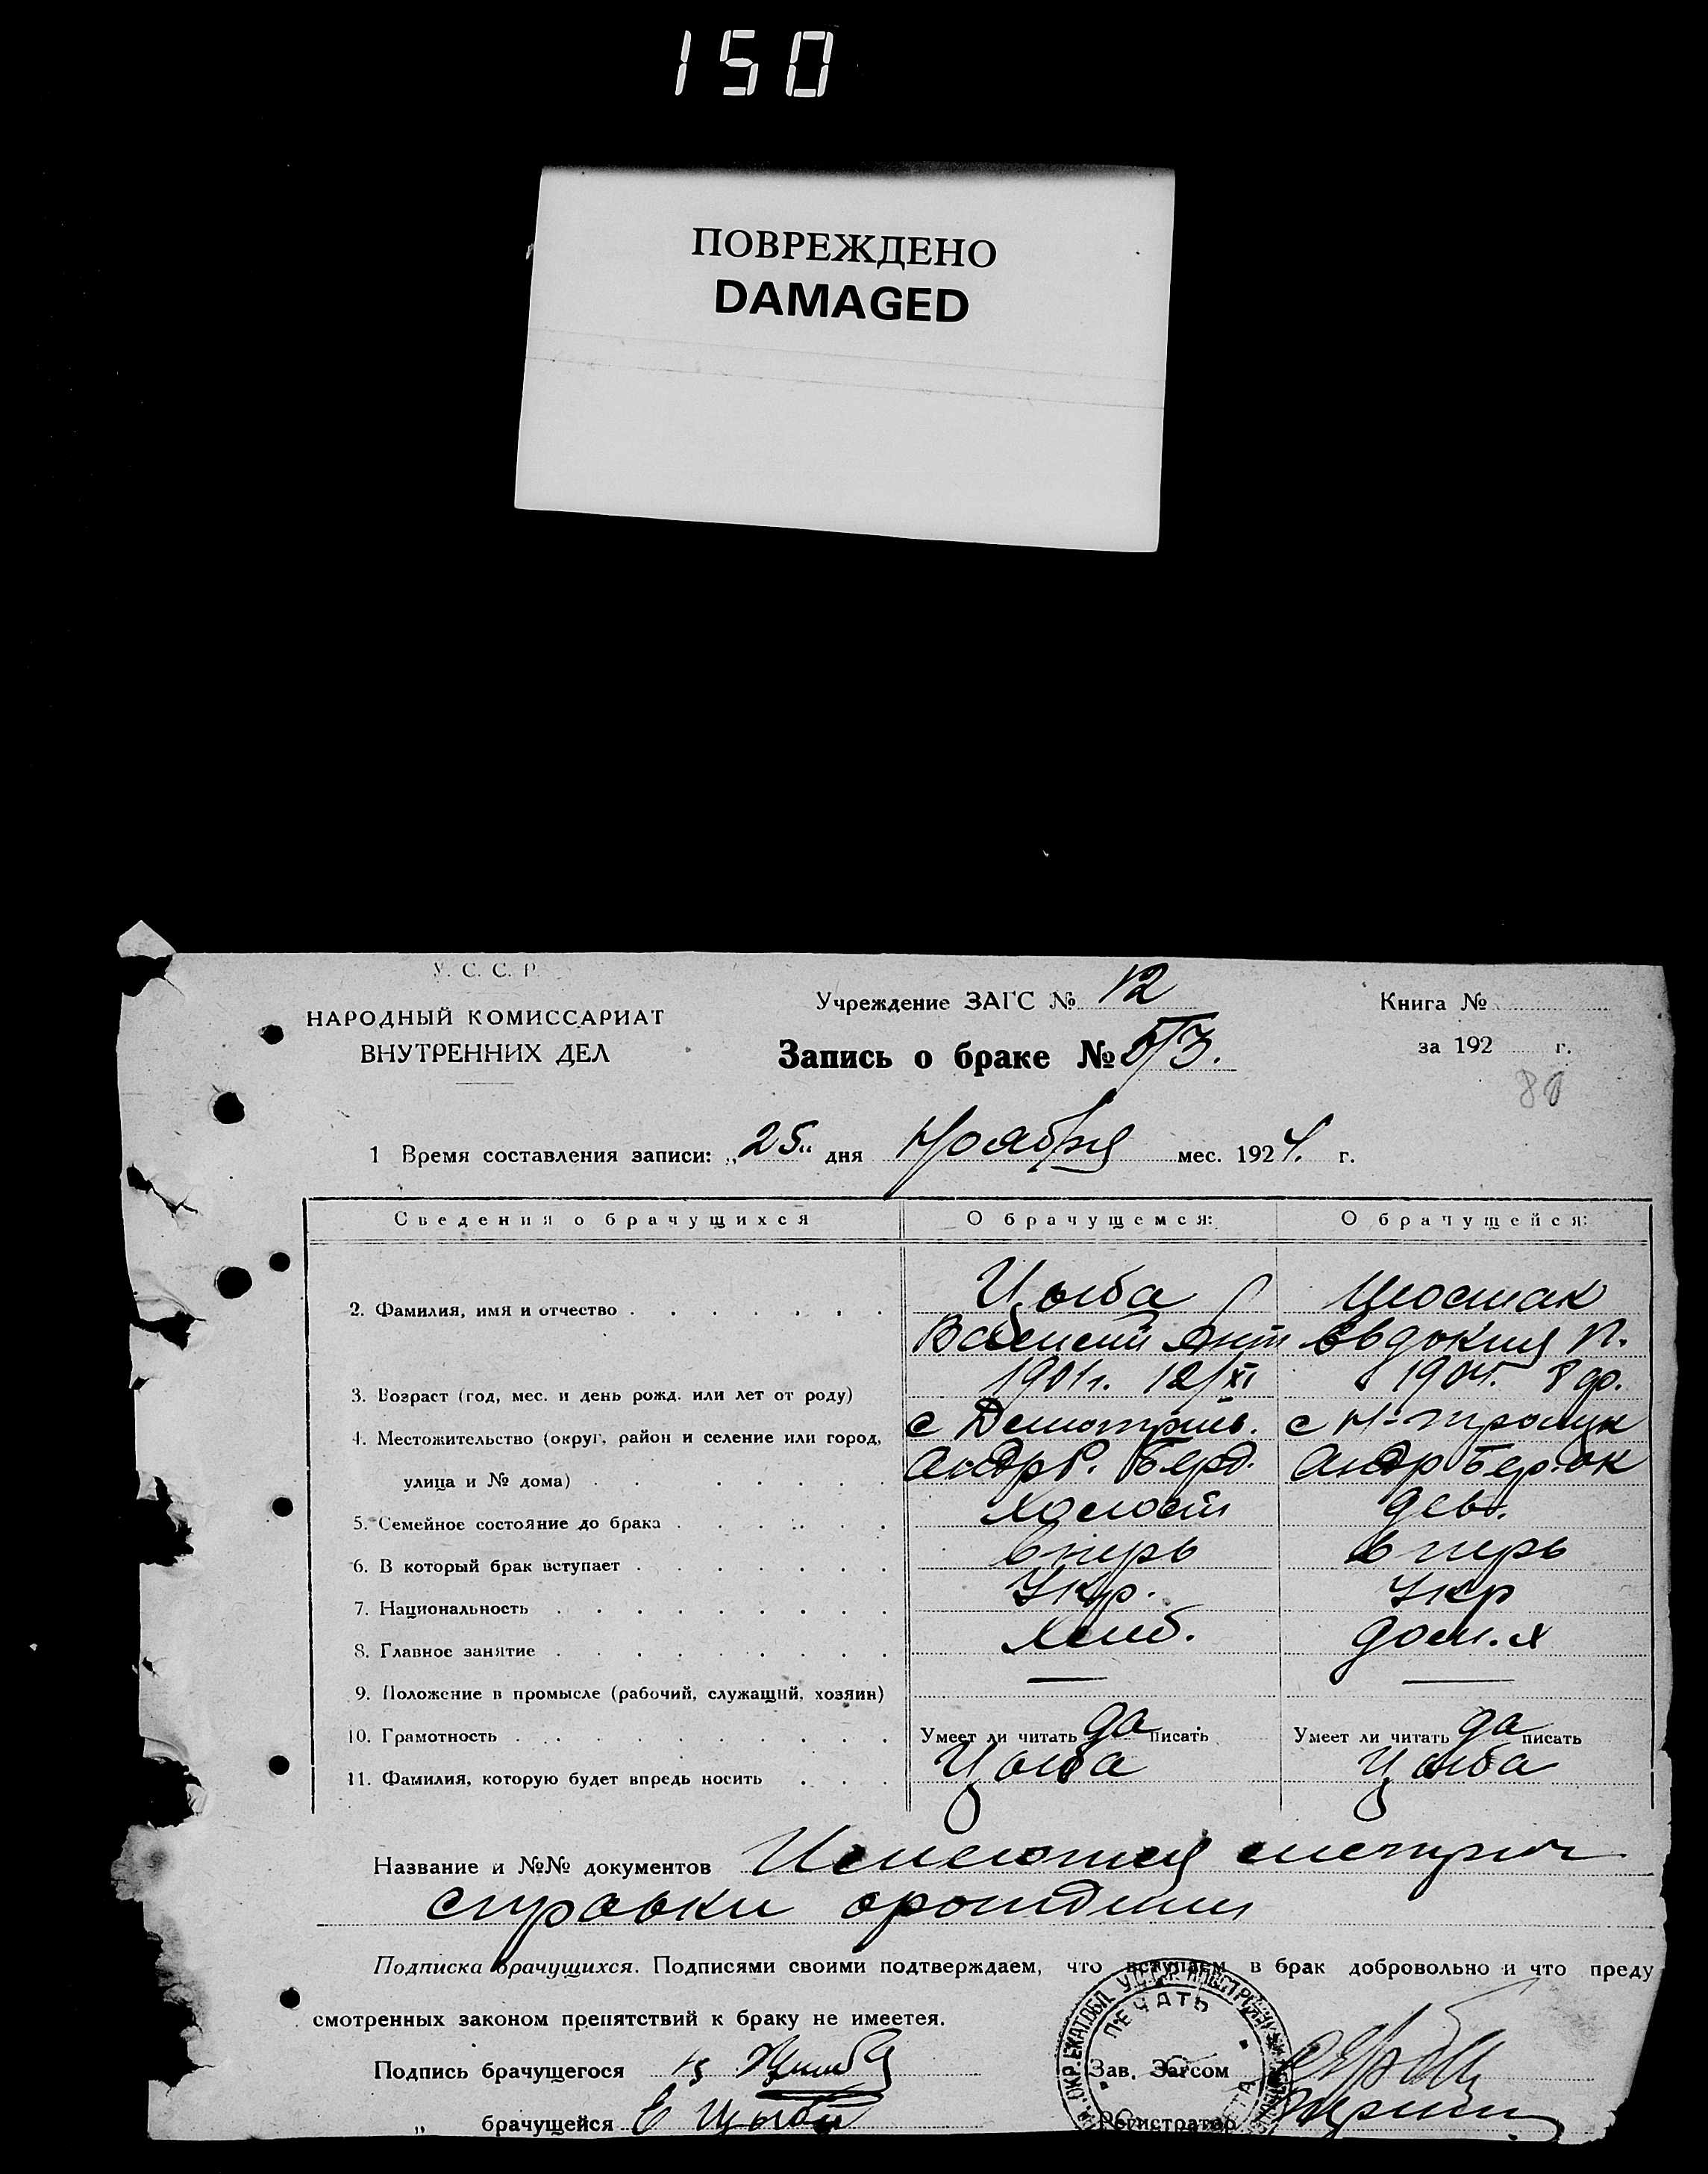 150
ПОВРЕЖДЕНО
DAMAGED
У. С. С. Р.
НАРОДНЫЙ КОМИССАРИАТ
ВНУТРЕННИХ ДЕЛ
Учреждение ЗАГС № 12
Запись о браке № 5/3.
Книга №
за 192 г.
80
1 Время составления записи: „25“ дня Ноября мес. 1924. г.
Сведения о брачущихся О брачущемся: О брачущейся:
2. Фамилия, имя и отчество Цыба Шостак
Василий Ант Евдокия П.
3. Возраст (год, мес. и день рожд. или лет от роду) 1901г. 12/XI 1904.
4. Местожительство (округ, район и селение или город, с Дмитрив. с Н-Троицк
улица и № дома) Андр Р. Берд. Андр Бер. ок
5. Семейное состояние до брака холост дев.
6. В который брак вступает вперв вперв
7. Национальность Укр. Укр
8. Главное занятие хлеб. дом. х
9. Положение в промысле (рабочий, служащий, хозяин) — —
10. Грамотность Умеет ли читать да писать Умеет ли читать да писать
11. Фамилия, которую будет впредь носить Цыба Цыба
Название и №№ документов Имеются метрич
справки о рождении
Подписка брачущихся. Подписями своими подтверждаем, что вступаем в брак добровольно и что преду
смотренных законом препятствий к браку не имеется.
Подпись брачущегося Цыба
Зав. Загсом
„ брачущейся Е Цыба
Регистратор
ПЕЧАТЬ